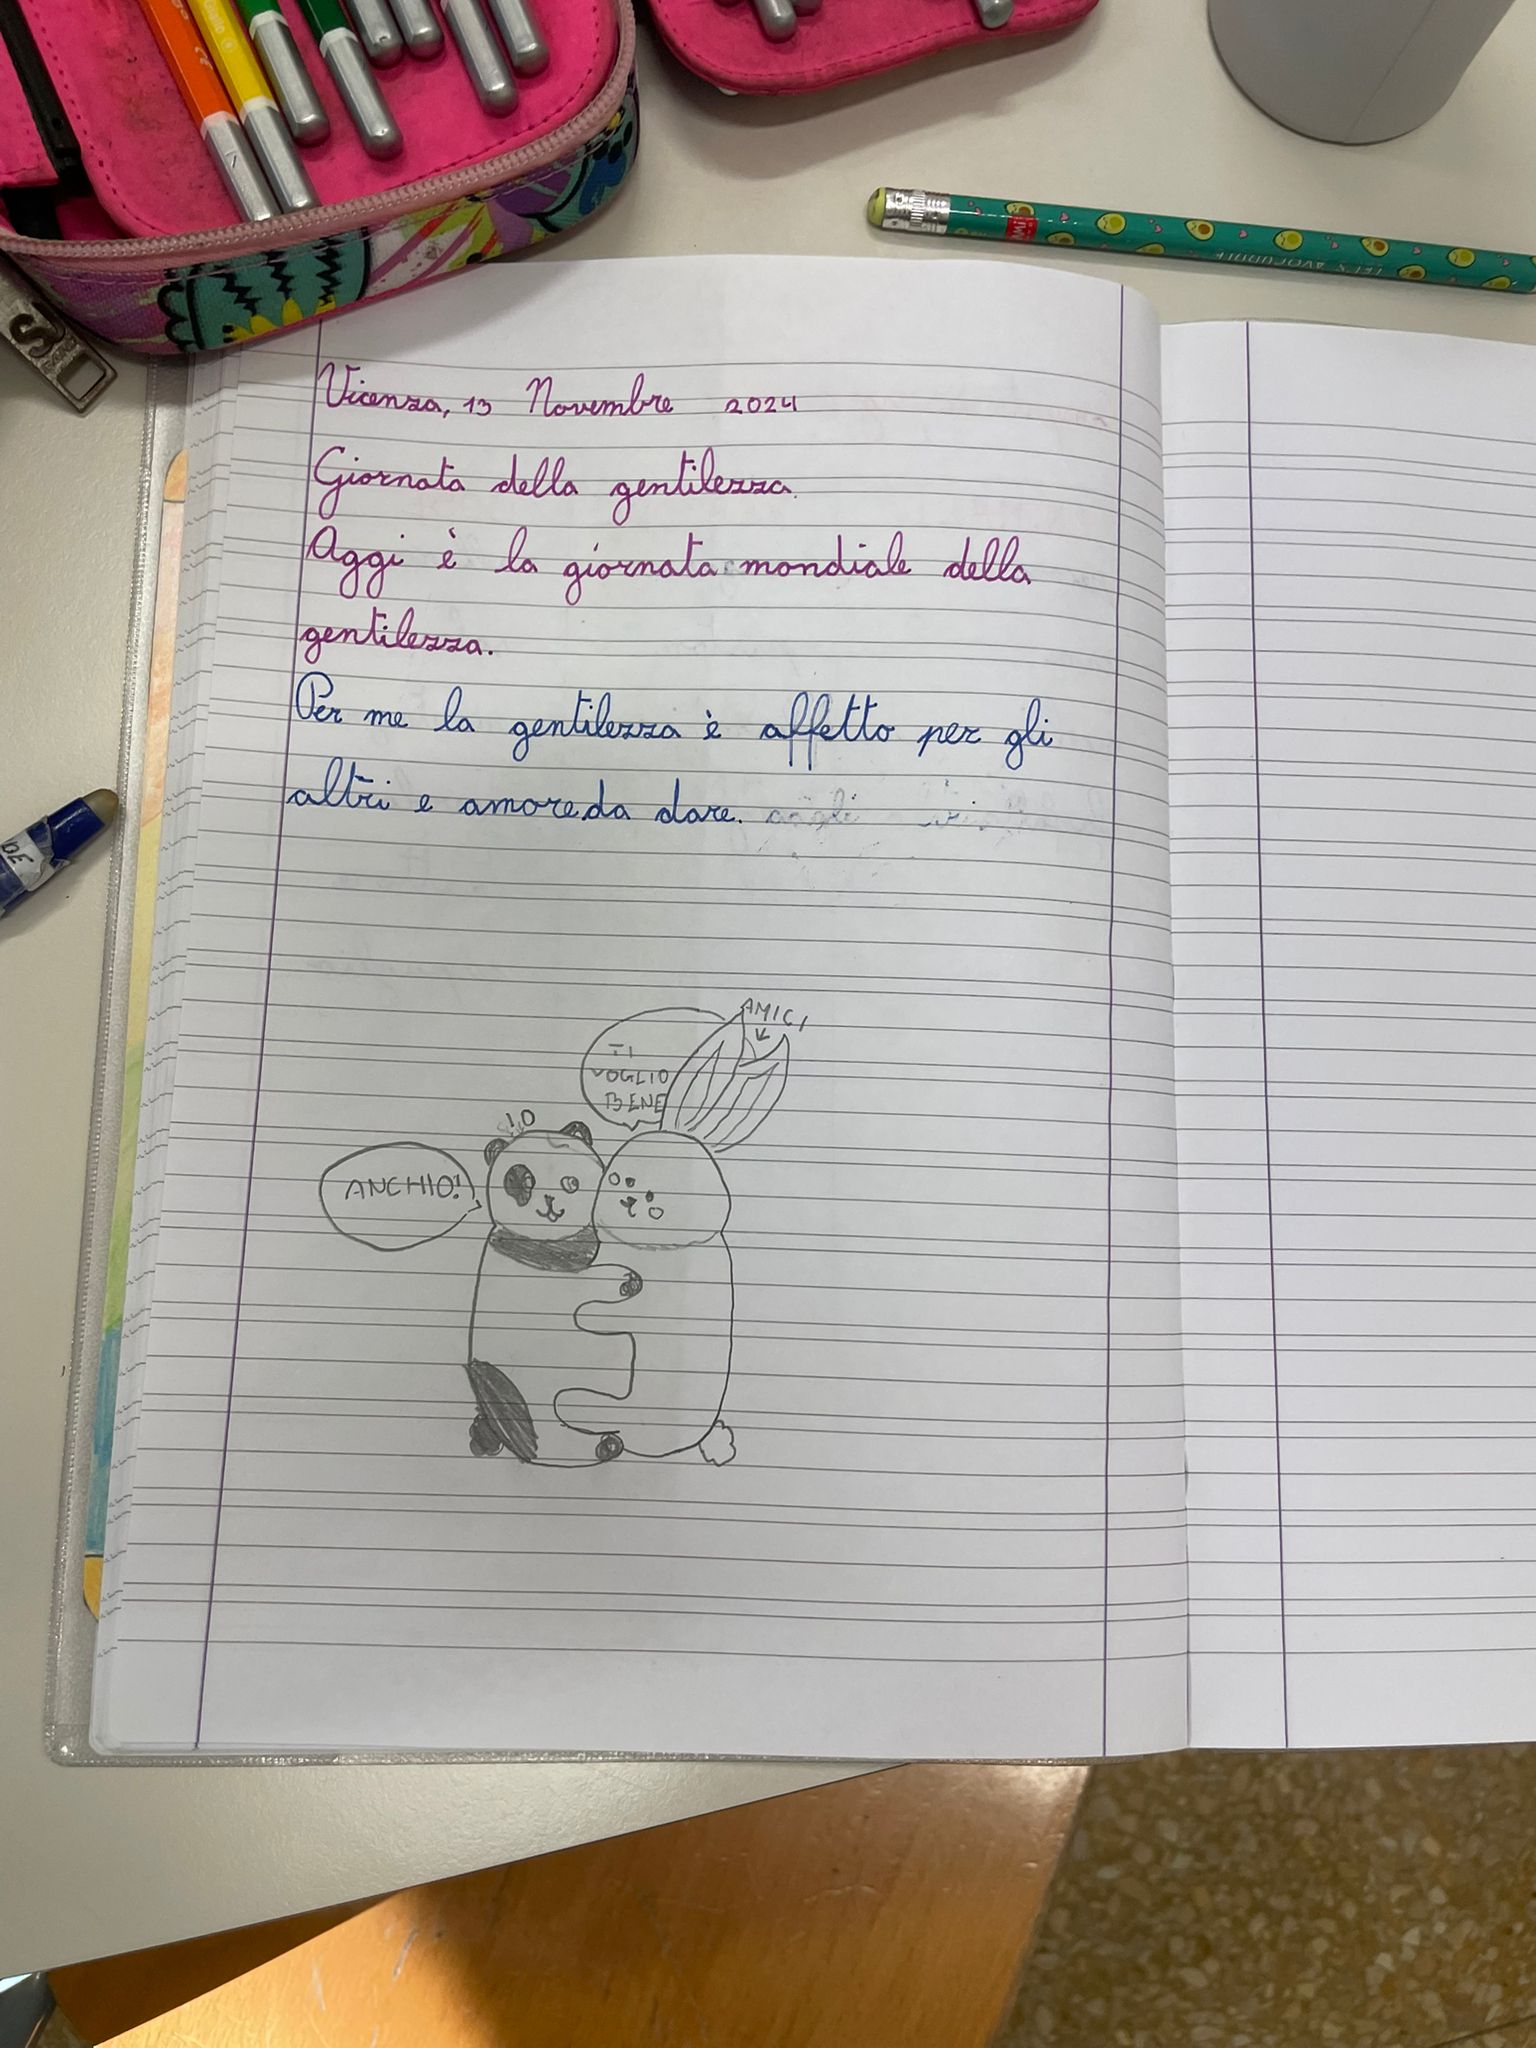 Vicenza, 13 Novembre 2024
Giornata della gentilezza.
Aggi è la giornata mondiale della
gentilezza.
Per me la gentilezza è affetto per gli
altri e amore da dare.
AMICI
TI
VOGLIO
BENE
IO
ANCHIO!
LET'S AVOCUDDLE